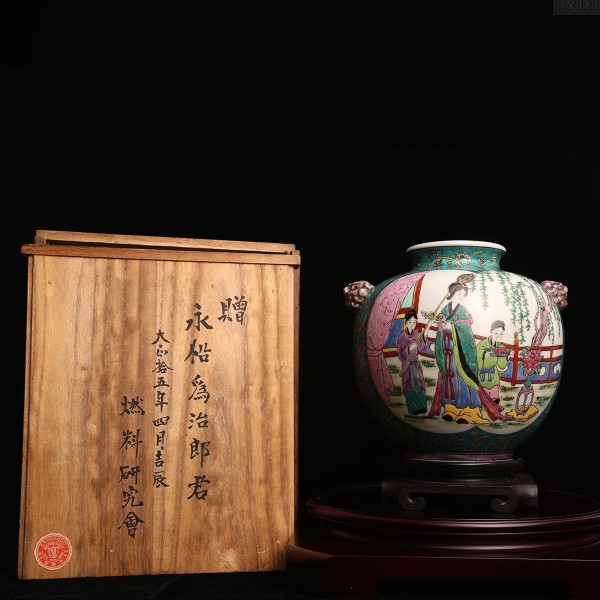 贈
永松爲治郎君
大正拾五年四月吉辰
燃料研究會